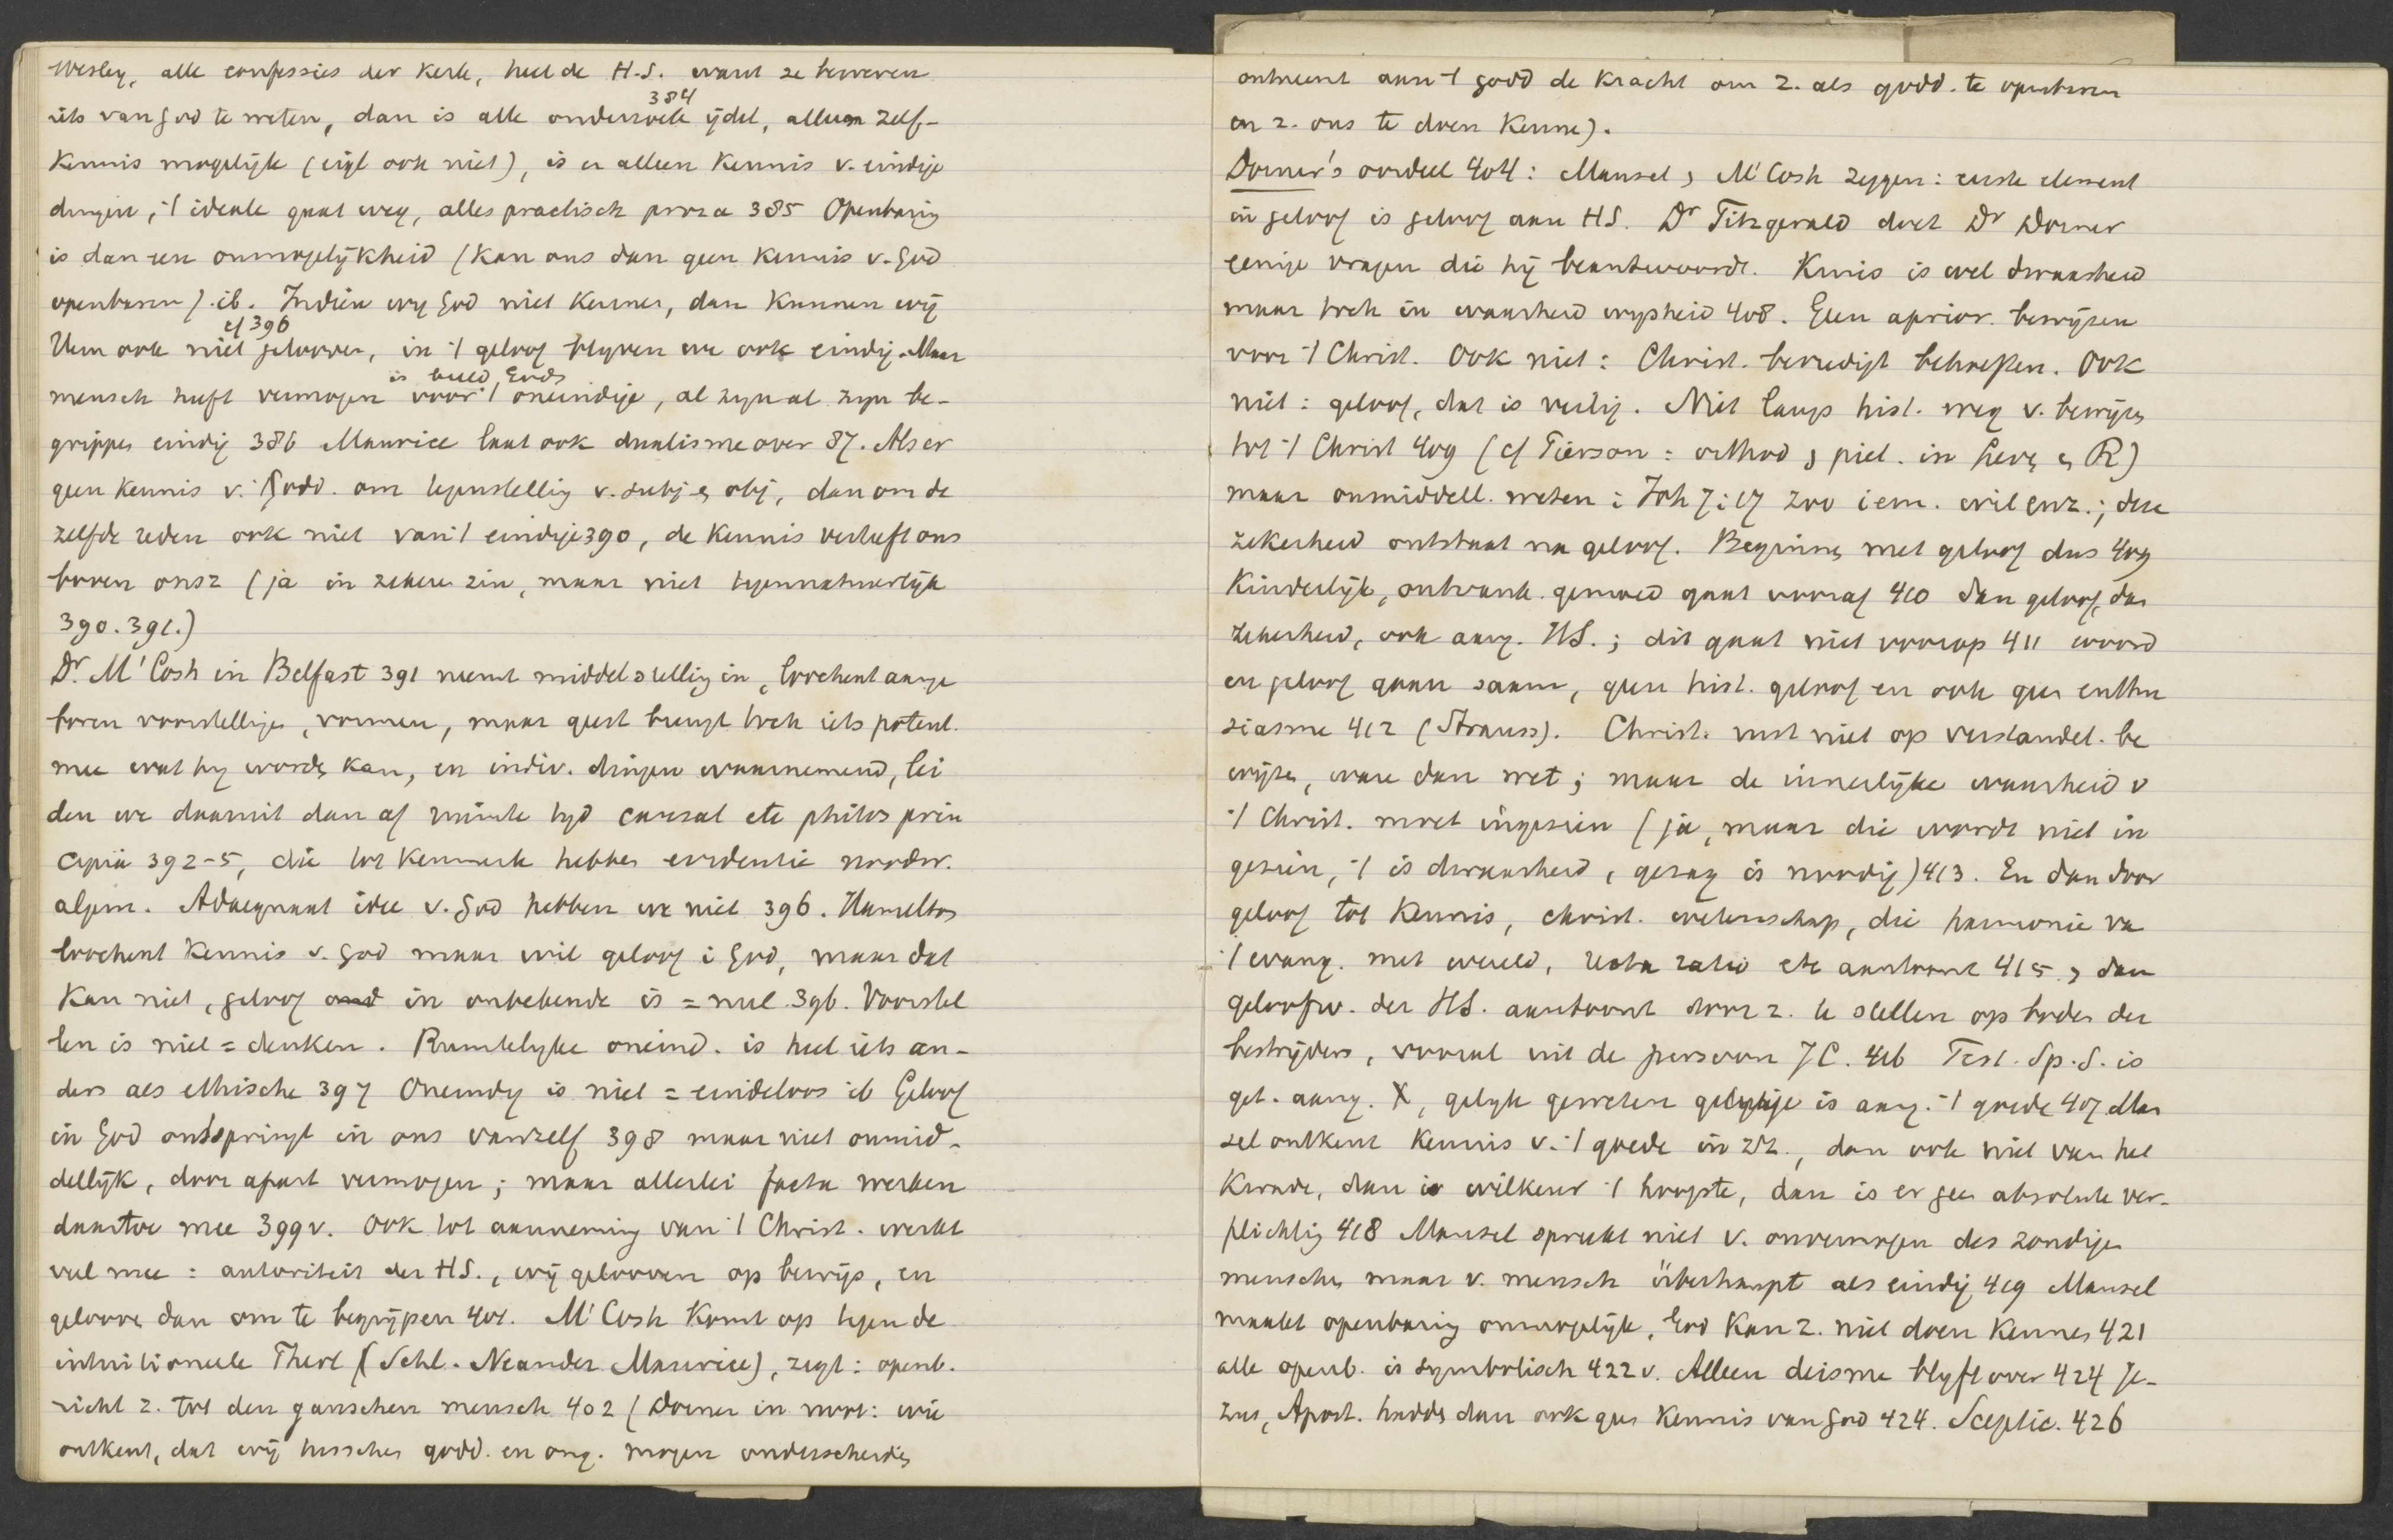 Wesley, alle confessies der Kerk, heel de H.S. want ze beweren
384
iets van God te weten, dan is alle onderzoek ijdel, alleen zelf-
Kennis mogelijk (eigl ook niet), is er alleen Kennis v. eindige
dingen, 't ideale gaat weg, alles practisch proza 385 Openbaring
is dan een onmogelijkheid (Kan ons dan geen Kennis v. God
openbaren). ib. Indien wij God niet Kennen, dan Kunnen wij
cf 396
Hem ook niet gelooven, in 't geloof blijven we ook eindig. Maar
is beeld Gods
mensch heeft vermogen voor 't oneindige, al zijn al zijn be-
grippen eindig 386 Maurice laat ook dualisme over 87. Als er
geen Kennis v. 't Godd. om tegenstelling v. subj. en obj, dan om de
zelfde reden ook niet van 't eindige 390, de Kennis verheft ons
boven onsz (ja in zekere zin, maar niet tegennatuurlijk
390. 391.)
Dr. M'Cosh in Belfast 391 neemt middelstelling in, loochent aange
boren voorstellingen, vormen, maar geest brengt toch iets potent.
mee wat hij worden kan, en indiv. dingen waarnemend, lei
den we daaruit dan af ruimte tijd causal etc philos prin
cipia 392-5, die tot Kenmerk hebben evidentie noodw.
algem. Adaequaat idee v. God hebben we niet 396. Hamilton
loochent Kennis v. God maar wil geloof i God, maar dat
Kan niet, geloof in onbekende is = nul 396. Voorstel
len is niet = denken. Ruimtelijke oneind. is heel iets an-
ders als ethische 397 Oneindig is niet = eindeloos ib Geloof
in God ontspringt in ons vanzelf 398 maar niet onmid-
dellijk, door apart vermogen; maar allerlei facta werken
daartoe mee 399v. Ook tot aanneming van 't Christ. werkt
veel mee: autoriteit der HS., wij gelooven op bewijs, en
gelooven dan om te begrijpen 401. M'Cosh Komt op tegen de
intuitioneele Theol (Schl. Neander Maurice), zegt: openb.
richt z. tot den ganschen mensch 402 (Dorner in noot: wie
ontkent, dat wij tusschen godd. en ong. mogen onderscheiden
ontneemt aan 't godd de Kracht om z. als godd. te openbaren
en z. ons te doen Kenne).
Dorner's oordeel 404: Mansel, M'Cosh zeggen: eerste element
in geloof is geloof aan HS. Dr Fitzgerald doet Dr Dorner
eenige vragen die hij beantwoordt. Kruis is wel dwaasheid
maar toch in waarheid wijsheid 408. Geen aprior. bewijzen
voor 't Christ. Ook niet: Christ. bevredigt behoeften. Ook
niet: geloof, dat is veilig. Niet langs hist. weg v. bewijzen
tot 't Christ 409 (cf Pierson: orthod, piet. in Heros en R)
maar onmiddell. weten: Joh 7:17 zoo iem. wil enz.; deze
zekerheid ontstaat na geloof. Beginnen met geloof dus 409
Kinderlijk, ontvank. gemoed gaat vooraf 410 dan geloof, dan
zekerheid, ook aang. HS.; dit gaat niet voorop 411 woord
en geloof gaan saam, geen hist. geloof en ook geen enthu
siasme 412 (Strauss). Christ. rust niet op verstandel. be
wijzen, ware dan wet; maar de innerlijke waarheid v
't Christ. moet ingezien (ja, maar die wordt niet in
gezien, 't is dwaasheid, gezag is noodig) 413. En dan door
geloof tot Kennis, christ. wetenschap, die harmonie va
't evang. met wereld, recta ratio etc aantoont 415, dan
geloofw. der HS. aantoont door z. te stellen op bodem der
bestrijders, vooral uit de persoon JC. 416 Test. Sp. S. is
get. aang. X, gelijk geweten getuige is aang. 't goede 407 Man
sel ontkent Kennis v. 't goede in zz., dan ook niet van het
Kwade, dan is willekeur 't hoogste, dan is er geen absolute ver-
plichting 418 Mansel spreekt niet v. onvermogen des zondigen
menschen maar v. mensch überhaupt als eindig 419 Mansel
maakt openbaring onmogelijk, God Kan z. niet doen Kennen 421
alle openb. is symbolisch 422v. Alleen deisme blijft over 424 Je-
zus, Apost. hadden dan ook geen Kennis van God 424. Sceptic. 426